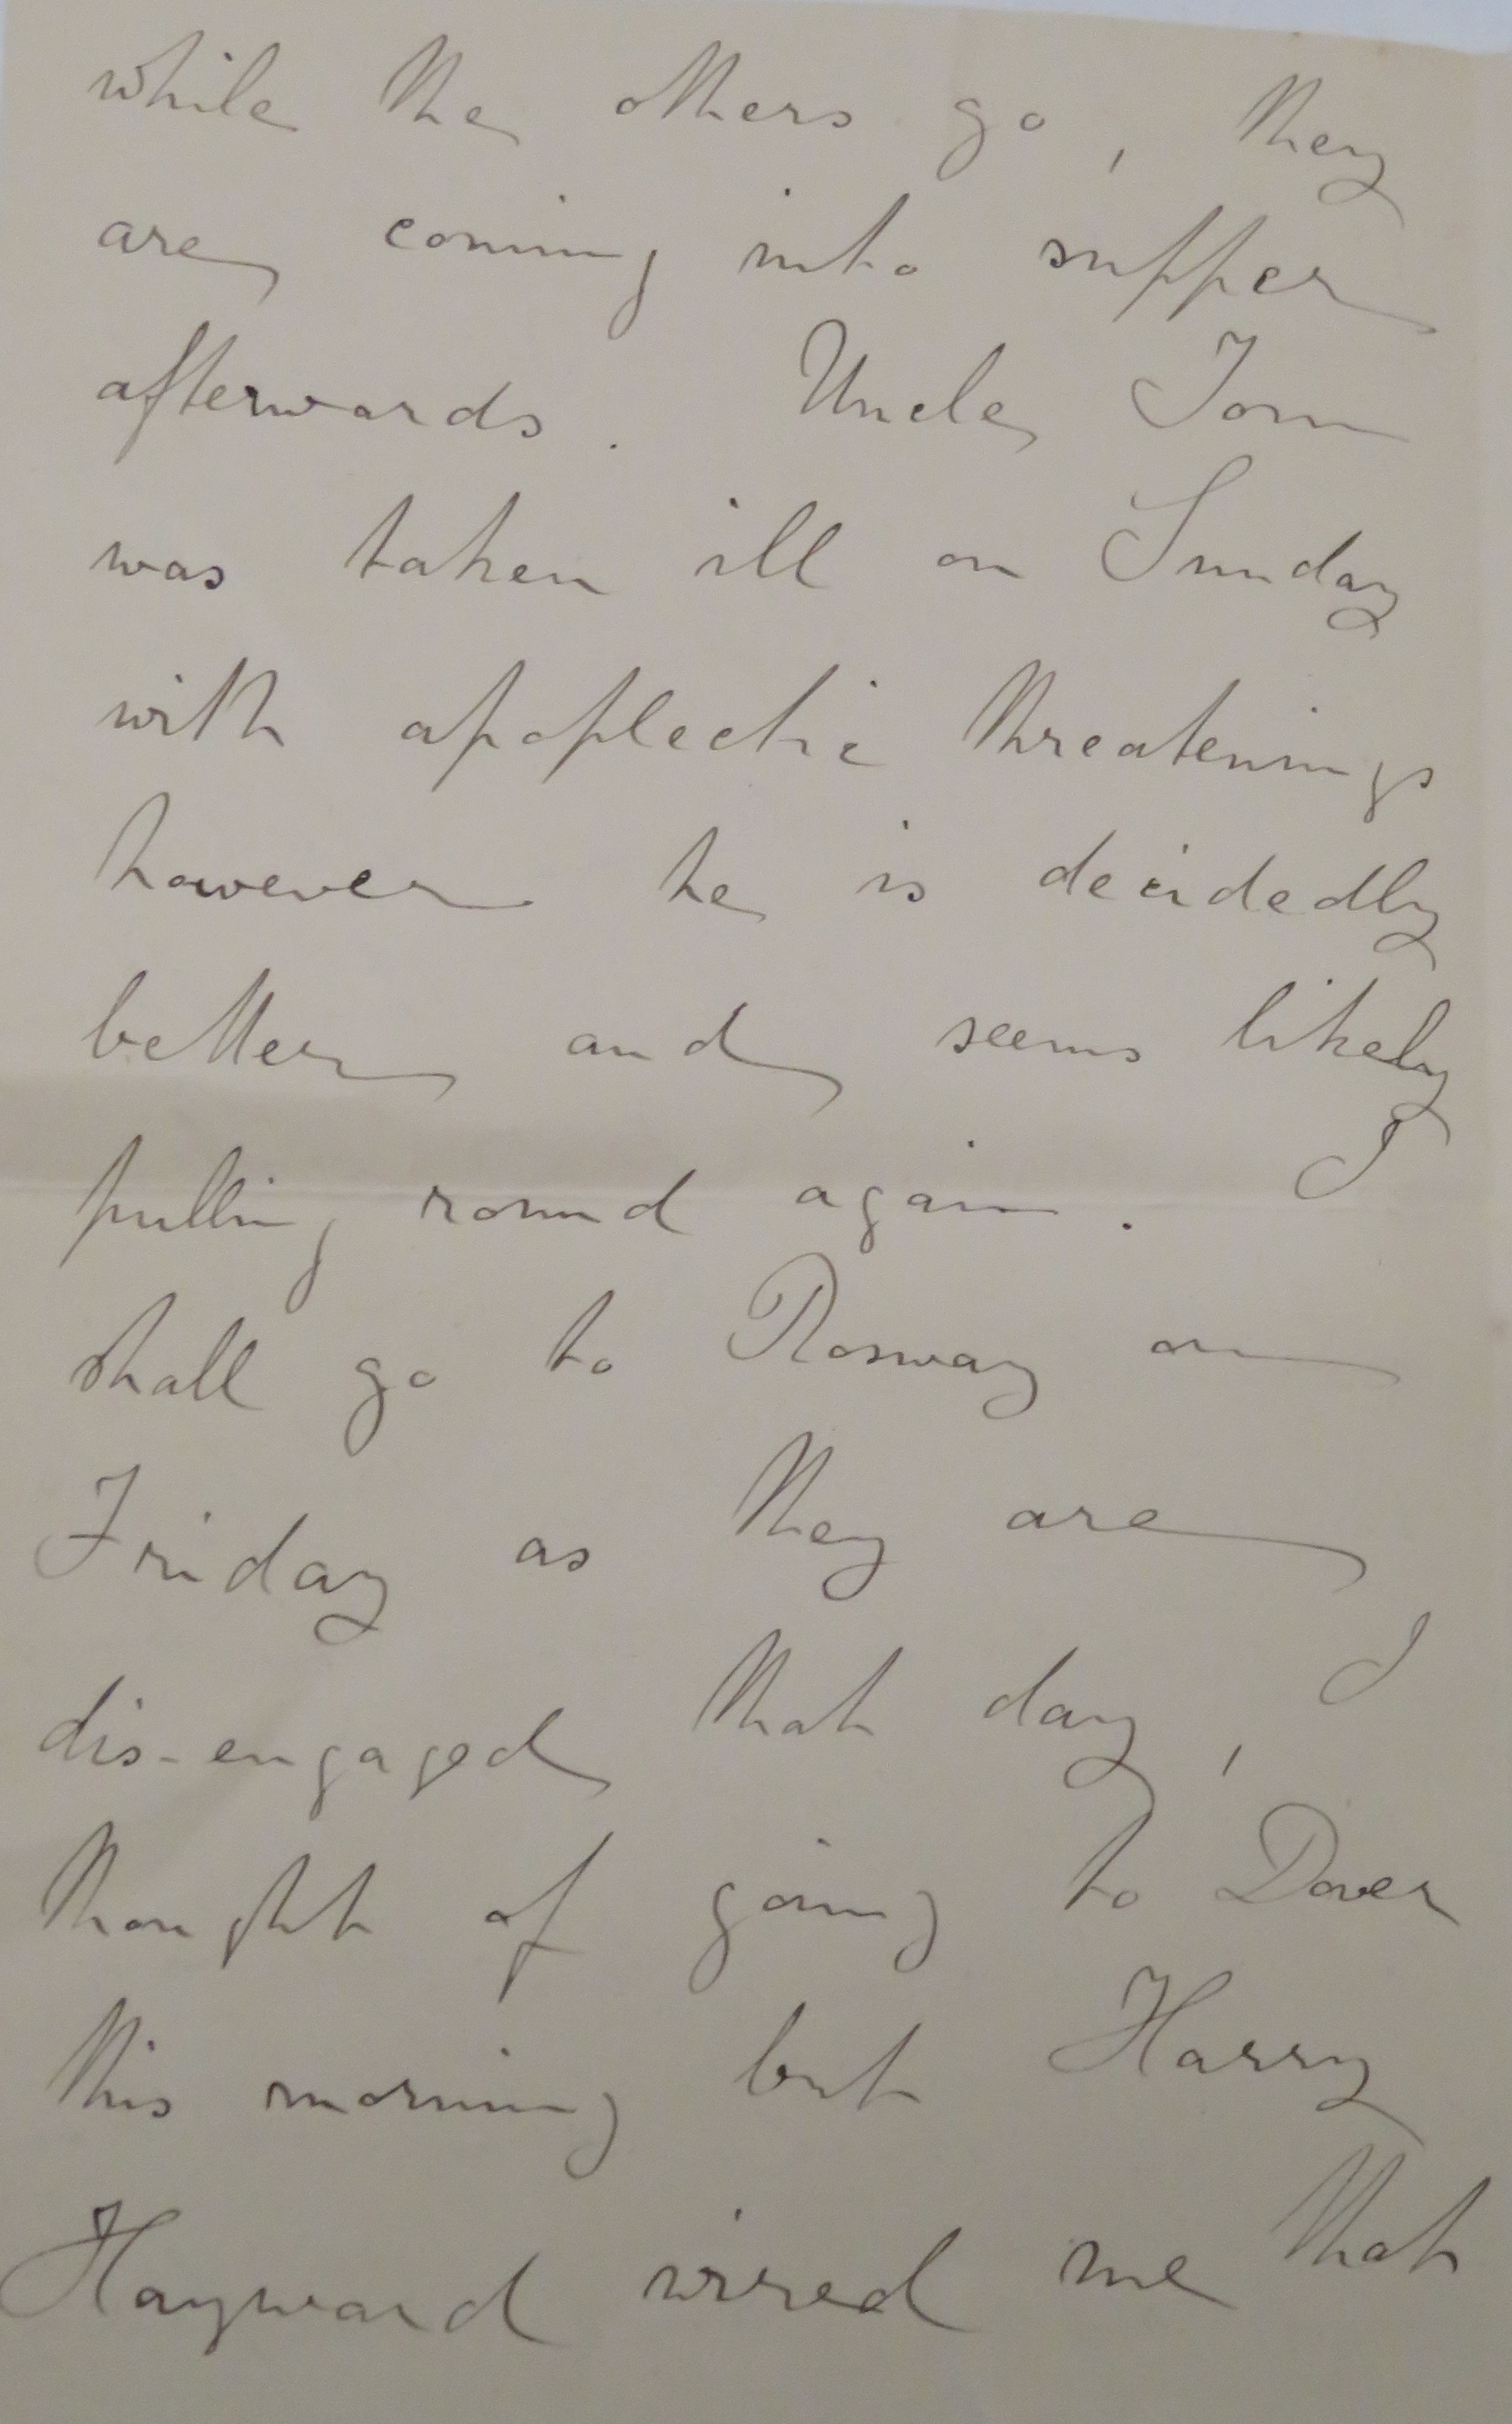 while the others go, they
are coming into supper
afterwards. Uncle Tom
was taken ill on Sunday
with apoplectic threatenings
however he is decidedly
better and seems likely
pulling round again. I
shall go to Rosway on
Friday as they are
dis-engaged that day, I
thought of going to Dover
this morning but Harry
Hayward wired me that